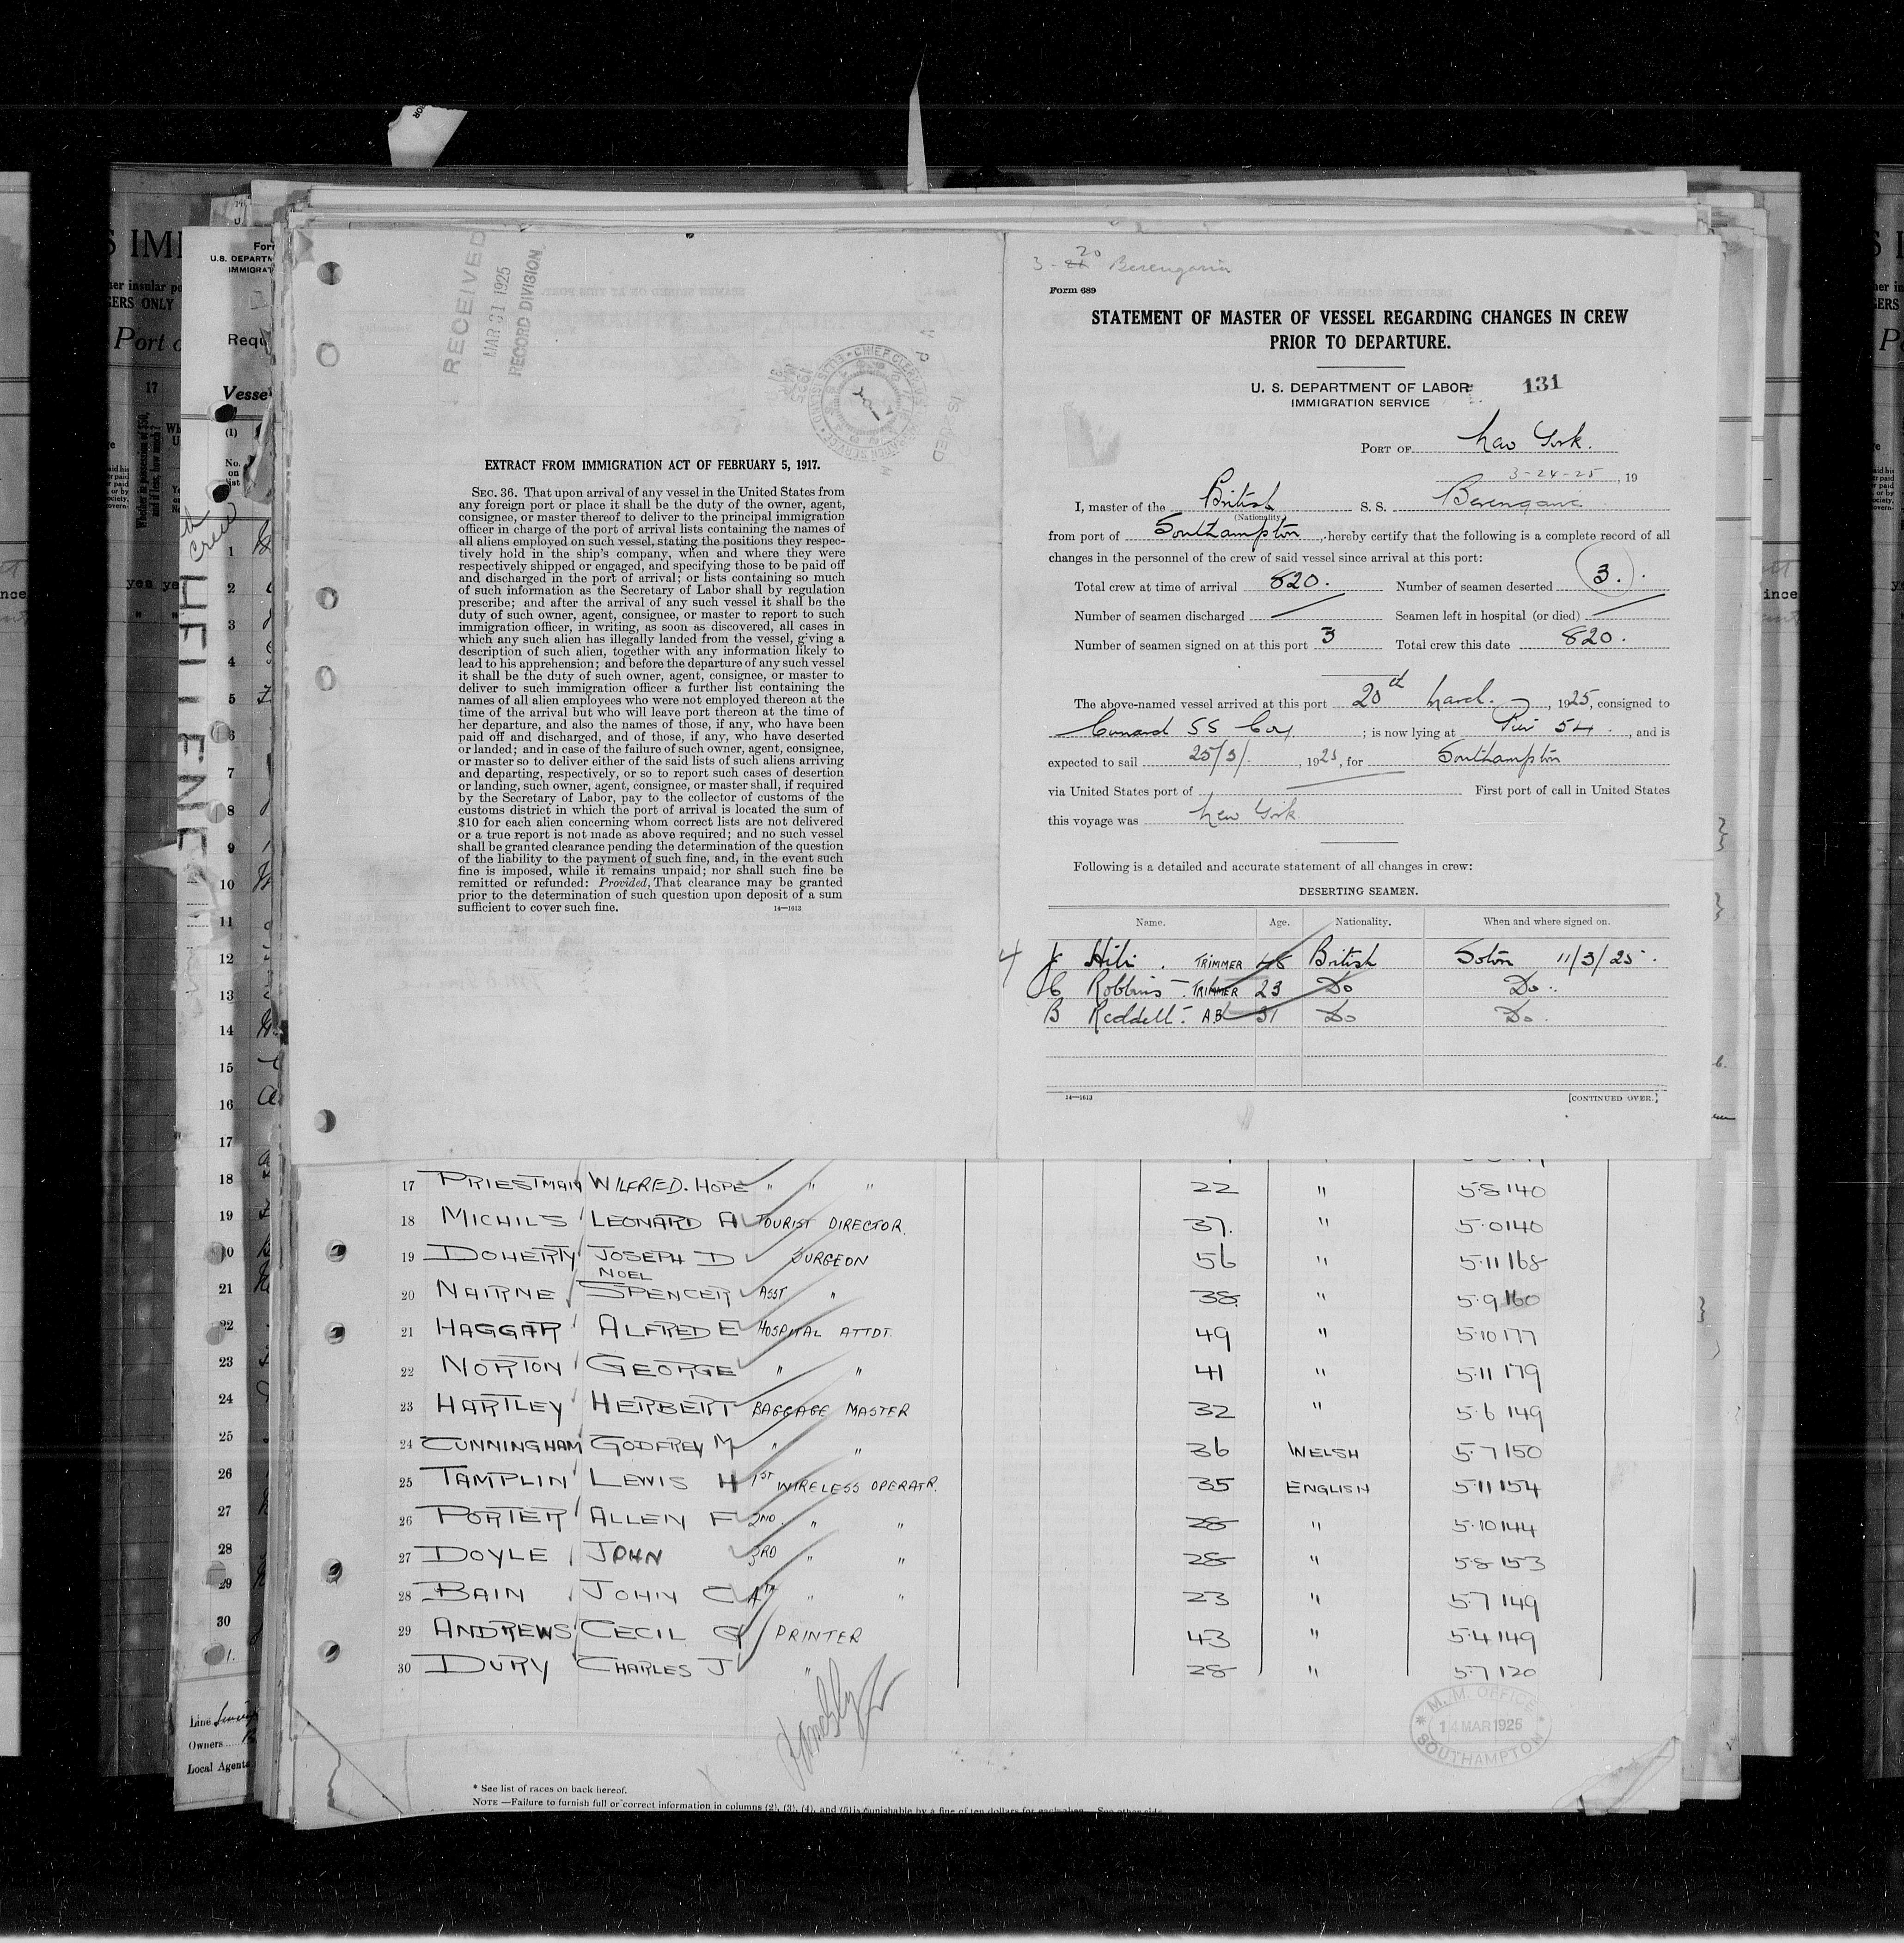 RECEIVED
MAR 31 1925
RECORD DIVISION
EXTRACT FROM IMMIGRATION ACT OF FEBRUARY 5, 1917.
SEC. 36. That upon arrival of any vessel in the United States from
any foreign port or place it shall be the duty of the owner, agent,
consignee, or master thereof to deliver to the principal immigration
officer in charge of the port of arrival lists containing the names of
all aliens employed on such vessel, stating the positions they respec-
tively hold in the ship's company, when and where they were
respectively shipped or engaged, and specifying those to be paid off
and discharged in the port of arrival; or lists containing so much
of such information as the Secretary of Labor shall by regulation
prescribe; and after the arrival of any such vessel it shall be the
duty of such owner, agent, consignee, or master to report to such
immigration officer, in writing, as soon as discovered, all cases in
which any such alien has illegally landed from the vessel, giving a
description of such alien, together with any information likely to
lead to his apprehension; and before the departure of any such vessel
it shall be the duty of such owner, agent, consignee, or master to
deliver to such immigration officer a further list containing the
names of all alien employees who were not employed thereon at the
time of the arrival but who will leave port thereon at the time of
her departure, and also the names of those, if any, who have been
paid off and discharged, and of those, if any, who have deserted
or landed; and in case of the failure of such owner, agent, consignee,
or master so to deliver either of the said lists of such aliens arriving
and departing, respectively, or so to report such cases of desertion
or landing, such owner, agent, consignee, or master shall, if required
by the Secretary of Labor, pay to the collector of customs of the
customs district in which the port of arrival is located the sum of
$10 for each alien concerning whom correct lists are not delivered
or a true report is not made as above required; and no such vessel
shall be granted clearance pending the determination of the question
of the liability to the payment of such fine, and, in the event such
fine is imposed, while it remains unpaid; nor shall such fine be
remitted or refunded: Provided, That clearance may be granted
prior to the determination of such question upon deposit of a sum
sufficient to cover such fine. 14—1613
3-21 20 Berengaria
Form 689
STATEMENT OF MASTER OF VESSEL REGARDING CHANGES IN CREW
PRIOR TO DEPARTURE.
U. S. DEPARTMENT OF LABOR 131
IMMIGRATION SERVICE
PORT OF New York.
3-24-25, 19
I, master of the British S. S. Berengaria
(Nationality)
from port of Southampton, hereby certify that the following is a complete record of all
changes in the personnel of the crew of said vessel since arrival at this port:
Total crew at time of arrival 820. Number of seamen deserted 3.
Number of seamen discharged / Seamen left in hospital (or died) /
Number of seamen signed on at this port 3 Total crew this date 820.
The above-named vessel arrived at this port 20th March. , 1925, consigned to
Cunard SS Coy ; is now lying at Pier 54. , and is
expected to sail 25/3/. , 1925, for Southampton
via United States port of First port of call in United States
this voyage was New York
Following is a detailed and accurate statement of all changes in crew:
DESERTING SEAMEN.
Name. Age. Nationality. When and where signed on.
4 J Hili . TRIMMER 48 British Soton 11/3/25.
C Robbins - TRIMMER 23 Do Do
B Reddell - AB 31 Do Do
14—1613 [CONTINUED OVER.]
17 PRIESTMAN WILFRED. HOPE " " " 22 " 5.8 140
18 MICHILS LEONARD A TOURIST DIRECTOR. 37. " 5.0 140
19 DOHERTY JOSEPH D SURGEON 56 " 5.11 168
NOEL
20 NAIRNE SPENCER ASST " 38. " 5.9 160
21 HAGGAR ALFRED E HOSPITAL ATTDT. 49 " 5.10 177
22 NORTON GEORGE " " 41 " 5.11 179
23 HARTLEY HERBERT BAGGAGE MASTER 32 " 5.6 149
24 CUNNINGHAM GODFREY M " " 36 WELSH 5.7 150
25 TAMPLIN LEWIS H 1ST WIRELESS OPERATR. 35 ENGLISH 5.11 154
26 PORTER ALLEN F 2ND " " 28 " 5.10 144
27 DOYLE JOHN 3RD " " 28 " 5.8 153
28 BAIN JOHN C 4TH " " 23 " 5.7 149
29 ANDREWS CECIL G PRINTER 43 " 5.4 149
30 DURY CHARLES J " 28 " 5.7 120
M. M. OFFICE
14 MAR 1925
SOUTHAMPTON
* See list of races on back hereof.
NOTE—Failure to furnish full or correct information in columns (2), (3), (4), and (5) is punishable by a fine of ten dollars for each alien. See other side.